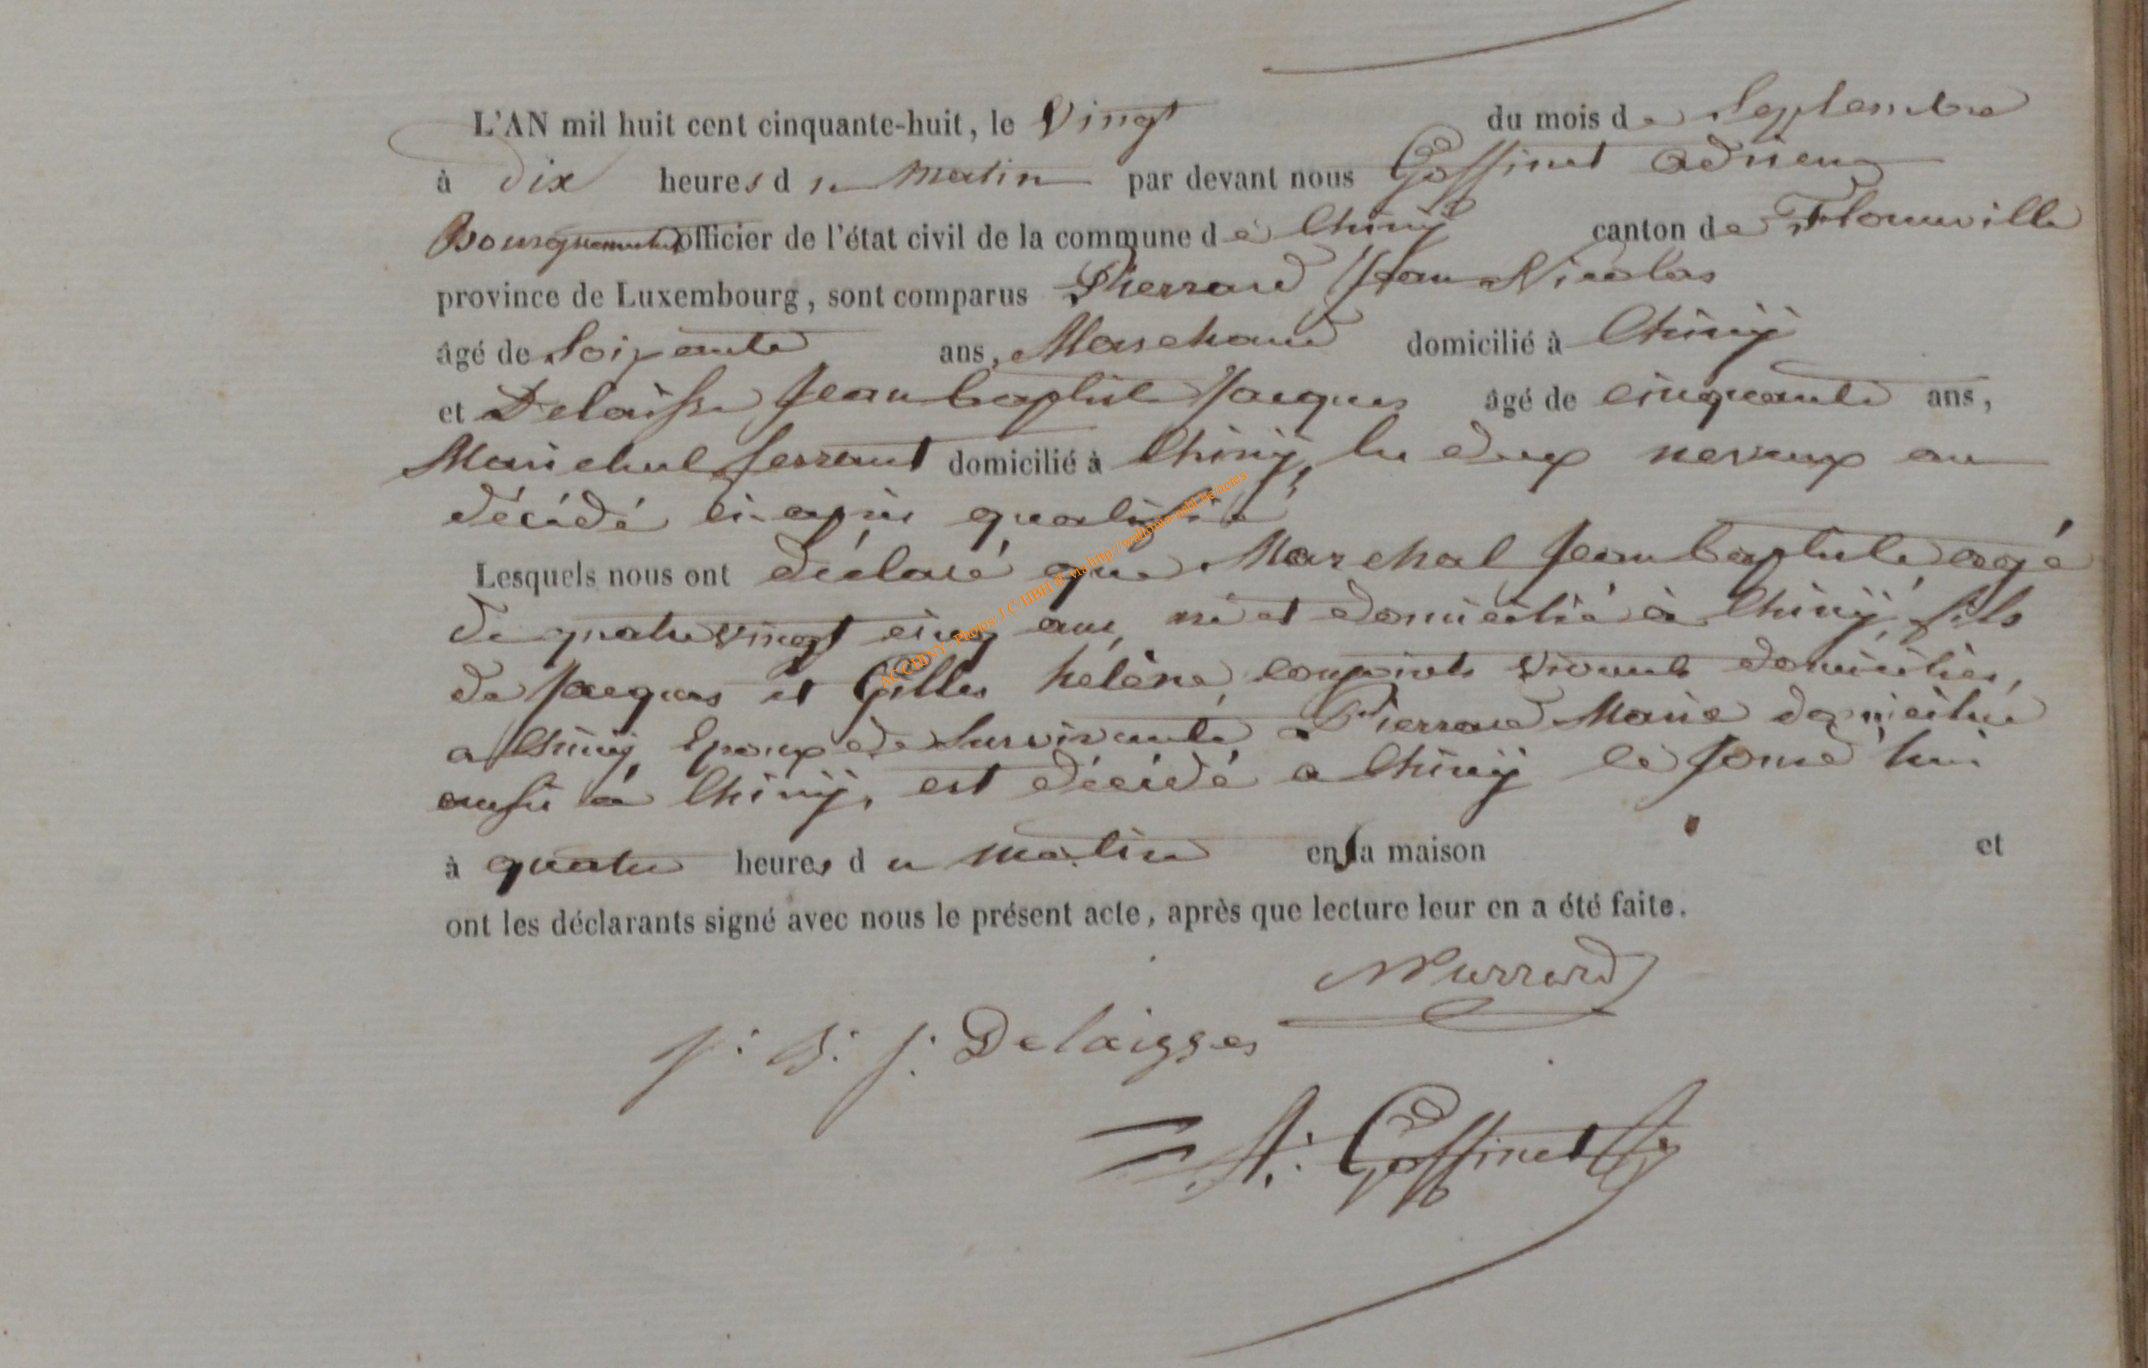 L'AN mil huit cent cinquante-huit, le Vingt du mois de Septembre
à dix heures du matin par devant nous Goffinet Adrien
Bourguemestre officier de l'état civil de la commune de Chiny canton de Florenville
province de Luxembourg, sont comparus Pierrard Jean Nicolas
âgé de Soixante ans, Marchand domicilié à Chiny
et Delaisse Jean baptiste Jacques âgé de cinquante ans,
Marichal ferrant domicilié à Chiny, les deux neveux au
décédé ci-après qualifié
Lesquels nous ont déclaré que Marchal Jean baptiste agé
de quatre vingt cinq ans, né et domicilié à Chiny, fils
de Jacques et Gilles helène, conjoints vivants domiciliés,
a Chiny, Epoux de Survivante a Pierrard Marie domiciliée
aussi à Chiny, est décédé a Chiny ce Jourd'hui
à quatre heures du matin en sa maison et
ont les déclarants signé avec nous le présent acte, après que lecture leur en a été faite.
NPierrard
J: B: J: Delaisses
A: Goffinet